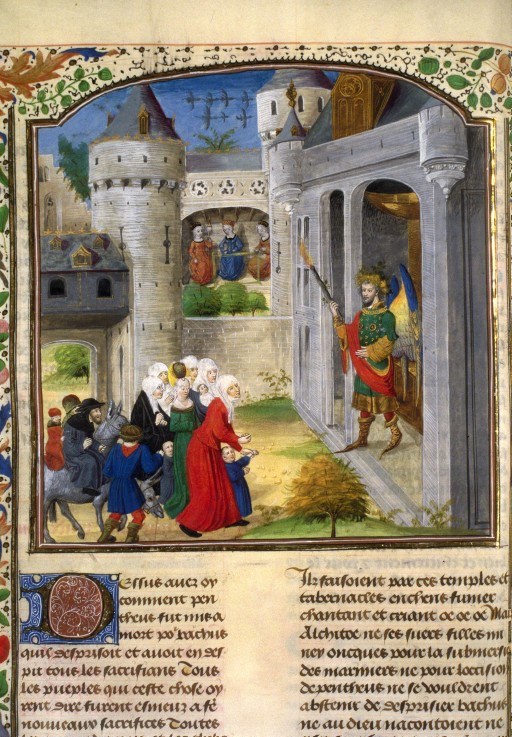 Dessus avez oy
comment pen
theus fut mis a
mort po' bachus
quil desprisoit et avoit en des
pit tous les sacrifians Tous
les pueples qui ceste chose oy
rent dire furent esmeuz a fe
nouveaux sacrifices Toutes
Ilz faisoient par ces temples et
tabernacles encens fumer
chantant et criant oe oe oe Mais
Alchitoe ne ses suers filles mi
ney oncques pour la submersio
des marimiers ne pour loccision
de pentheus ne se vouldrent
abstenir de desprisier bachus
ne au dieu nacontoient ne